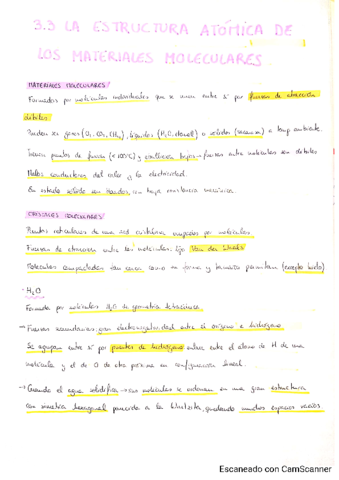 3.3 LA ESTRUCTURA ATÓMICA DE
LOS MATERIALES MOLECULARES.
MATERIALES MOLECULARES:
Formados por moléculas individuales que se unen entre sí por fuerzas de atracción
débiles.
Pueden ser gases (O₂, CO₂, CH₄), líquidos (H₂O, etanol) o sólidos (sacarosa) a temp ambiente.
Tienen puntos de fusión (<100°C) y ebullición bajos → fuerzas entre moléculas son débiles.
Malos conductores del calor o la electricidad.
En estado sólido son blandos, con baja resistencia mecánica.
CRISTALES MOLECULARES:
Puntos reticulares de una red cristalina ocupados por moléculas.
Fuerzas de atracción entre las moléculas: tipo Van der Waals
Moléculas empaquetadas tan cerca como su forma y tamaño permitan (excepto hielo)
· H₂O
Formada por moléculas H₂O de geometría tetraédrica.
→ Fuerzas secundarias: gran electronegatividad entre el oxígeno e hidrógeno
Se agrupan entre sí por puentes de hidrógeno entre el átomo de H de una
molécula y el de O de otra próxima en configuración lineal.
→ Cuando el agua solidifica → sus moléculas se ordenan en una gran estructura
con simetría hexagonal parecida a la Wurtzita, quedando muchos espacios vacíos
Escaneado con CamScanner